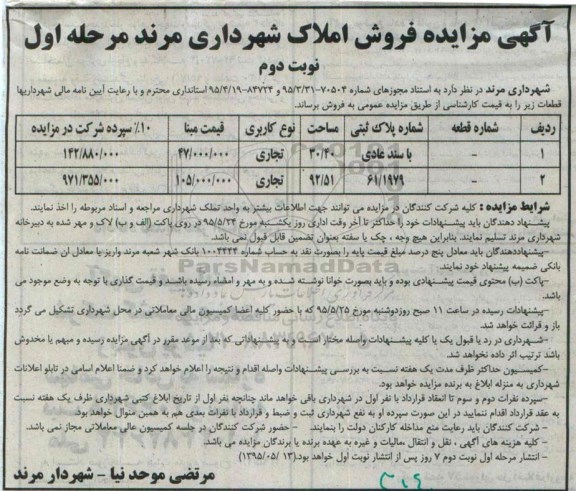 آگهی مزایده فروش املاک شهرداری مرند مرحله اول
نوبت دوم
شهرداری مرند در نظر دارد به استناد مجوزهای شماره ۷۰۵۰۴-۹۵/۳/۳۱ و ۸۴۷۲۴-۹۵/۴/۱۹ استانداری محترم و با رعایت آیین نامه مالی شهرداریها
قطعات زیر را به قیمت کارشناسی از طریق مزایده عمومی به فروش برساند.
ردیف شماره قطعه شماره پلاک ثبتی مساحت نوع کاربری قیمت مبنا ۱۰٪ سپرده شرکت در مزایده
۱ - با سند عادی ۳۰/۴۰ تجاری ۴۷/۰۰۰/۰۰۰ ۱۴۲/۸۸۰/۰۰۰
۲ - ۶۱/۱۹۷۹ ۹۲/۵۱ تجاری ۱۰۵/۰۰۰/۰۰۰ ۹۷۱/۳۵۵/۰۰۰
شرایط مزایده : کلیه شرکت کنندگان در مزایده می توانند جهت اطلاعات بیشتر به واحد تملک شهرداری مراجعه و اسناد مربوطه را اخذ نمایند.
پیشنهاد دهندگان باید پیشنهادات خود را حداکثر تا آخر وقت اداری روز یکشنبه مورخ ۹۵/۵/۲۴ در روی پاکت (الف و ب) لاک و مهر شده به دبیرخانه
شهرداری مرند تسلیم نمایند. بنابراین هیچ وجه ، چک یا سفته بعنوان تضمین قابل قبول نمی باشد.
-پیشنهاددهندگان باید معادل پنج درصد مبلغ قیمت پایه را بصورت نقد به حساب شماره ۱۰۰۴۴۴۴ بانک شهر شعبه مرند واریز یا معادل آن ضمانت نامه
بانکی ضمیمه پیشنهاد خود نمایند.
-پاکت (ب) محتوی قیمت پیشنهادی بوده و باید بصورت خوانا نوشته شده و به مهر و امضاء رسیده باشند و قیمت گذاری با توجه به وضع موجود می
باشد.
-پیشنهادات رسیده در ساعت ۱۱ صبح روزدوشنبه مورخ ۹۵/۵/۲۵ که با حضور کلیه اعضا کمیسیون مالی معاملاتی در محل شهرداری تشکیل می گردد
باز و قرائت خواهد شد.
-شهرداری در رد یا قبول یک یا کلیه پیشنهادات واصله مختار است و به پیشنهاداتی که بعد از موعد مقرر در آگهی مزایده رسیده و مبهم یا مخدوش
باشد ترتیب اثر داده نخواهد شد.
-کمیسیون حداکثر ظرف مدت یک هفته نسبت به بررسی پیشنهادات واصله اقدام و نتیجه را اعلام خواهد کرد و ضمنا اعلام اسامی در تابلو اعلانات
شهرداری به منزله ابلاغ به برنده مزایده خواهد بود.
-سپرده نفرات دوم و سوم تا انعقاد قرارداد با نفر اول در شهرداری باقی خواهد ماند چنانچه نفر اول از تاریخ ابلاغ کتبی شهرداری ظرف یک هفته نسبت
به عقد قرارداد اقدام ننمایید در این صورت سپرده او به نفع شهرداری ثبت و ضبط و قرارداد با نفرات بعدی هم به همین منوال خواهد بود.
- شرکت کنندگان باید رعایت منع مداخله کارکنان دولت را بنمایند. - حضور شرکت کنندگان در جلسه کمیسیون عالی معاملاتی مجاز نمی باشد.
- کلیه هزینه های آگهی ، نقل و انتقال ،مالیات و غیره به عهده برنده یا برندگان مزایده می باشد.
- انتشار مرحله اول نوبت دوم ۷ روز پس از انتشار نوبت اول خواهد بود.(۱۳ /۱۳۹۵/۰۵)
مرتضی موحد نیا - شهردار مرند
ParsNamadData